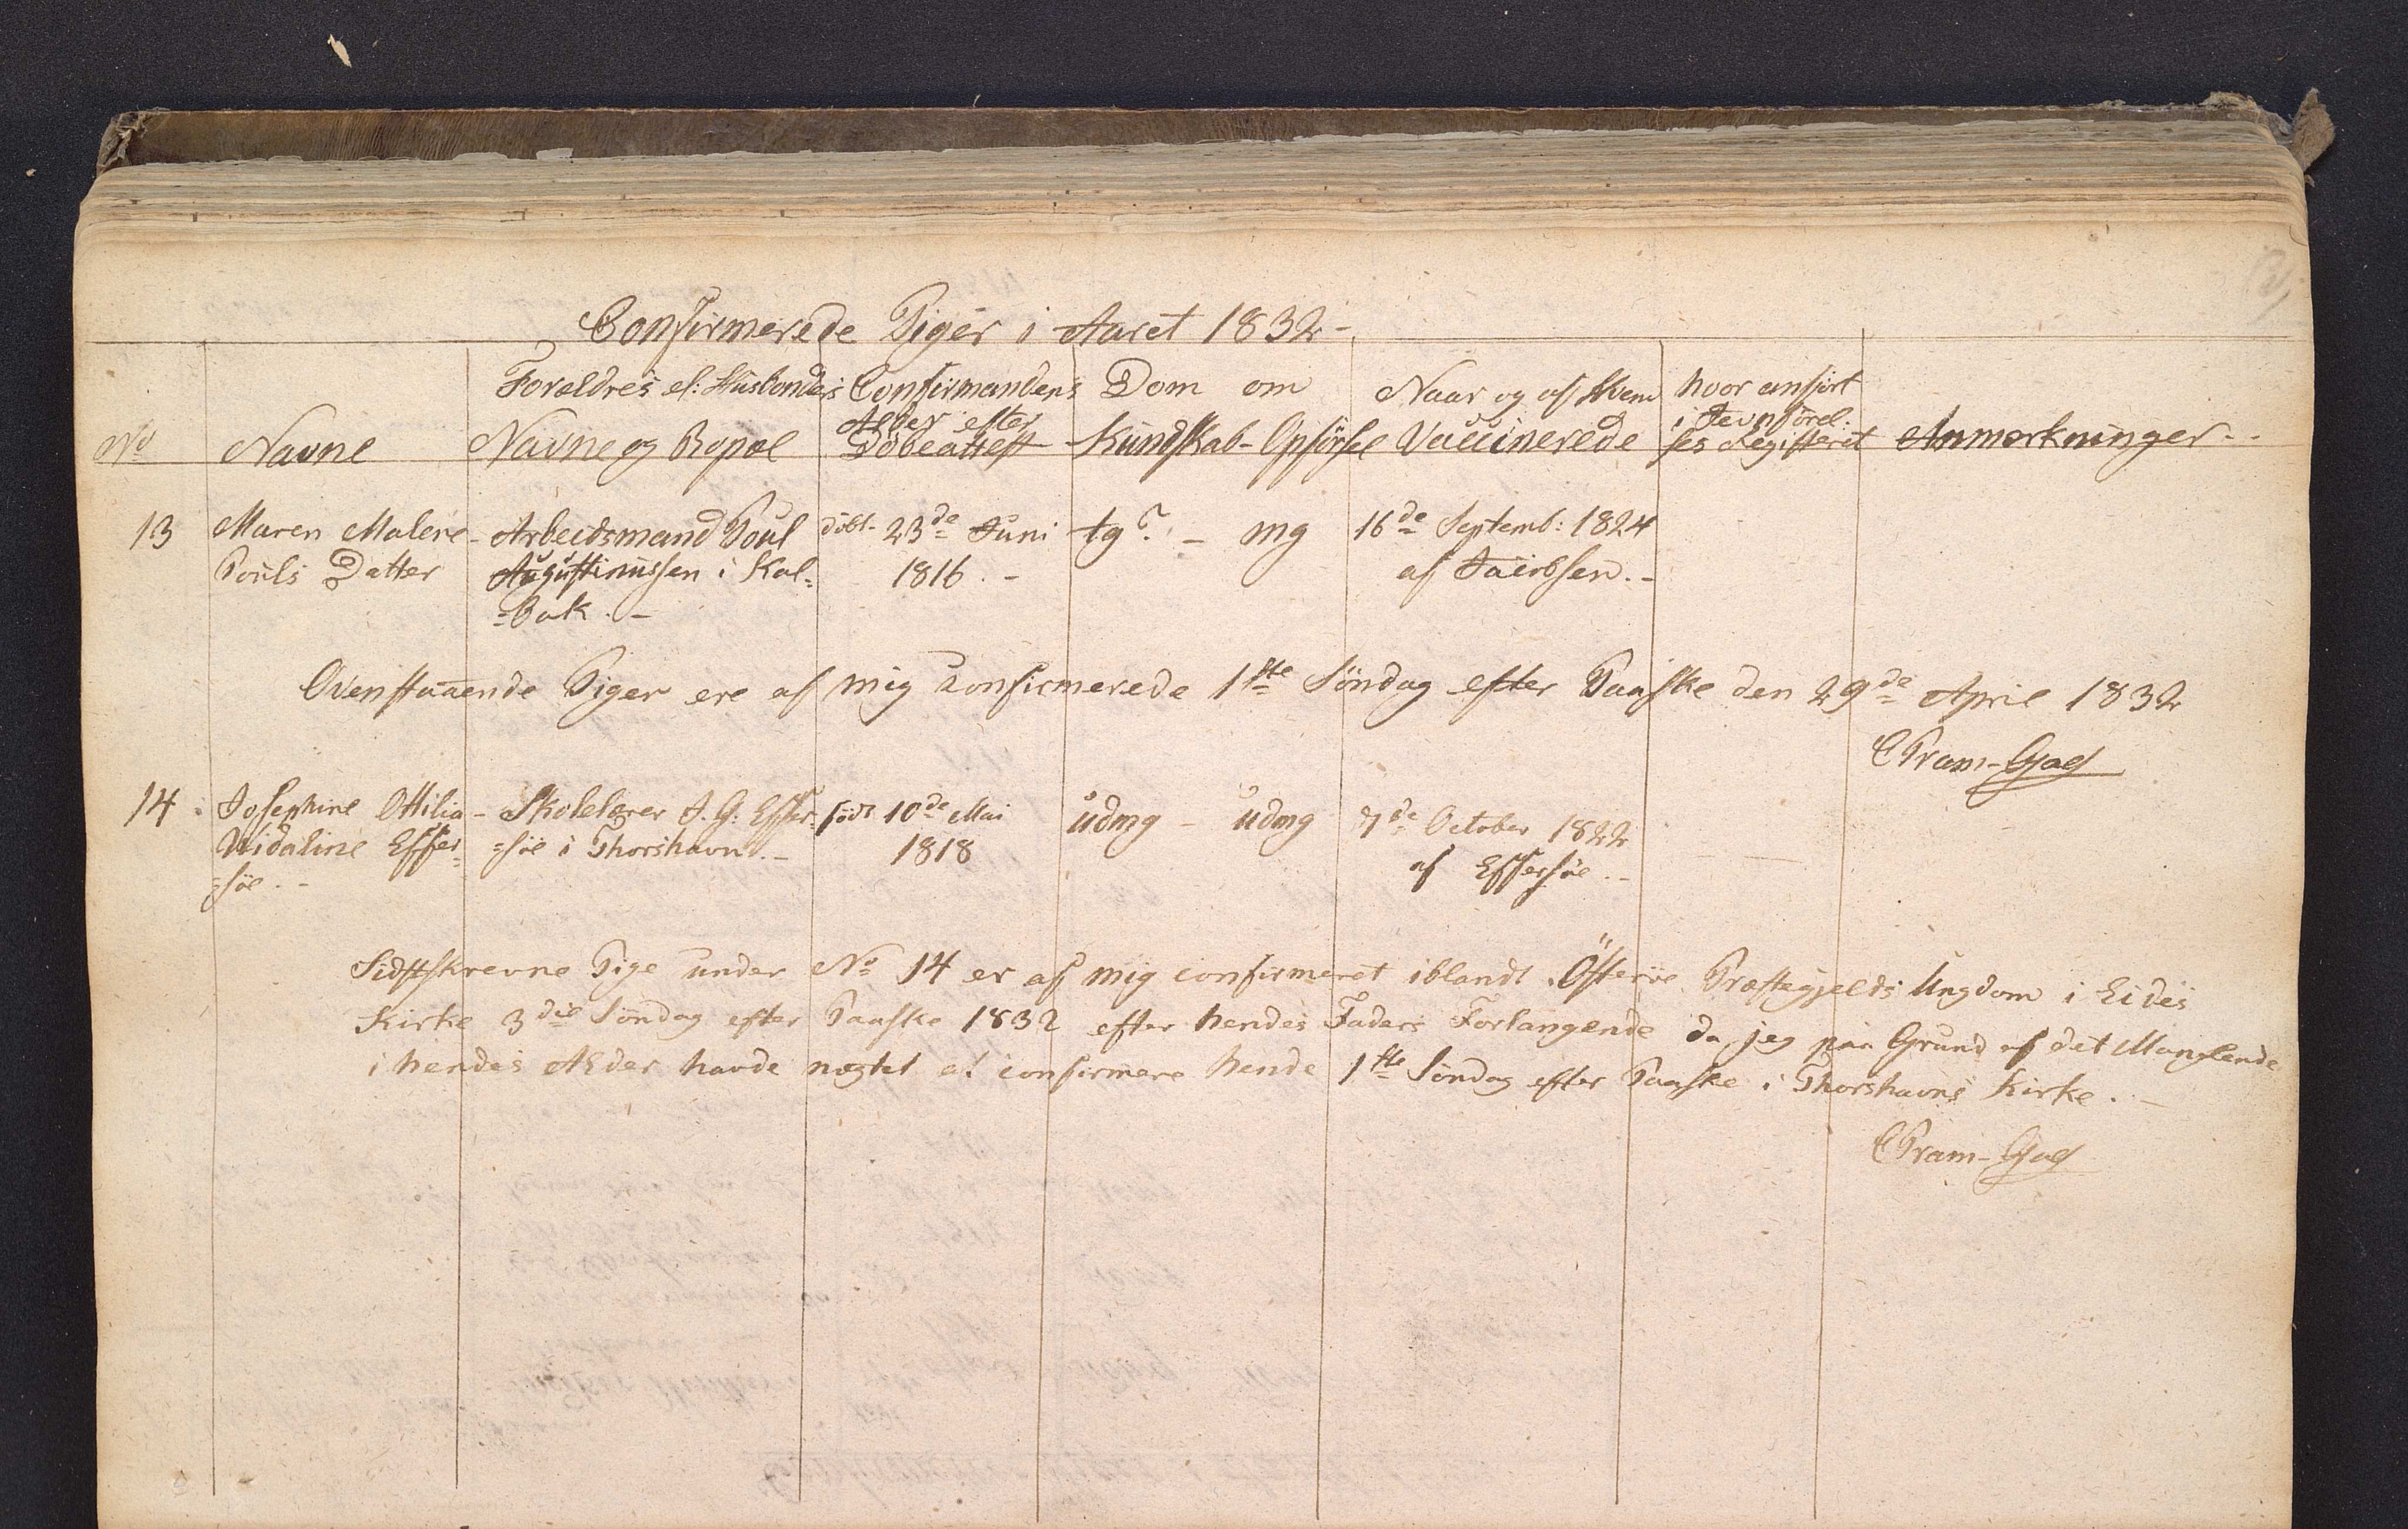 Confirmerede Piger i Aaret 1832 -
No
Navne
Forældres el: Husbonds
Navne og Bopæl
Confirmandens
Alder efter
Döbeattest
Dom om
Kundskab - Opförsel
Naar og af Hvem
Vaccinerede
hvor anfört
i Jevnförel:
ses Registeret
Anmærkninger - -
13
Maren Malene
Pouls Datter
- Arbeidsmand Poul
Augustinussen i Kal=
=bak . -
döbt. 23de Juni
1816 . -
tg? - mg
16de Septemb: 1824
af Jacobsen . -
Ovenstaaende Piger ere af mig confirmerede 1ste Söndag efter Paaske den 29de April 1832
C Pram-Gad
14 .
Josephine Ottilia
Widaline Effer=
=söe . -
- Skolelærer J. G: Effer=
=söe i Thorshavn . -
födt 10de Mai
1818
udmg - udmg
7de October 1822
af Effersöe . -
Sidstskrevne Pige under No 14 er af mig confirmeret iblandt Österöe Præstegjelds Ungdom i Eides
Kirke 3die Söndag efter Paaske 1832 efter hendes Faders Forlangende da jeg paa Grund af det Manglende
i hendes Alder havde nægtet at confirmere hende 1ste Söndag efter Paaske i Thorshavns Kirke . -
C Pram-Gad